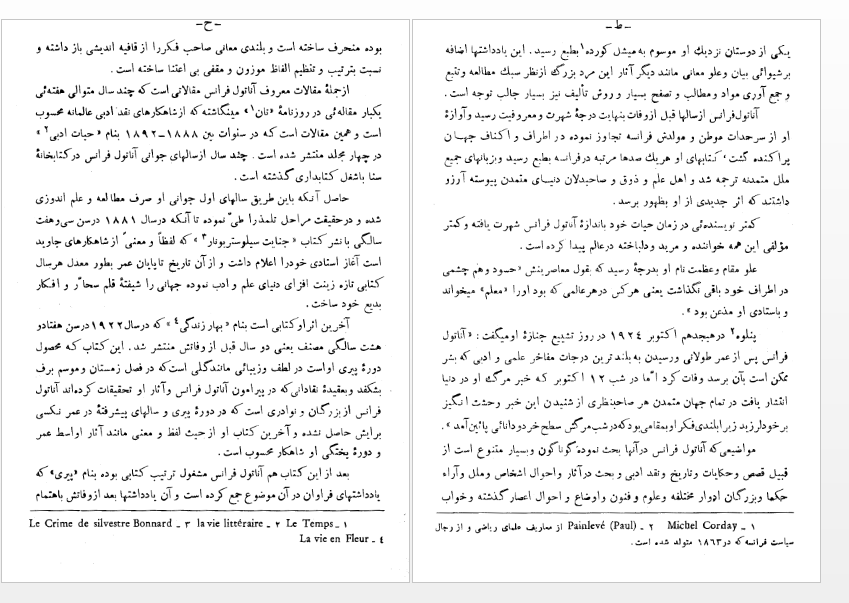 -ح-
بوده منحرف ساخته است و بلندی معانی صاحب فکررا از قافیه اندیشی باز داشته و
نسبت بترتیب و تنظیم الفاظ موزون و مقفی بی اعتنا ساخته است .
ازجملهٔ مقالات معروف آناتول فرانس مقالاتی است که چند سال متوالی هفته‌ئی
یکبار مقاله‌ئی در روزنامهٔ «تان۱» مینگاشته که ازشاهکارهای نقد ادبی عالمانه محسوب
است و همین مقالات است که در سنوات بین ۱۸۸۸-۱۸۹۲ بنام « حیات ادبی۲ »
در چهار مجلد منتشر شده است . چند سال ازسالهای جوانی آناتول فرانس درکتابخانهٔ
سنا باشغل کتابداری گذشته است .
حاصل آنکه باین طریق سالهای اول جوانی او صرف مطالعه و علم اندوزی
شده و درحقیقت مراحل تلمذرا طیّ نموده تا آنکه درسال ۱۸۸۱ درسن سی‌وهفت
سالگی با نشر کتاب « جنایت سیلوستربونار۳ » که لفظاً و معنیً ازشاهکارهای جاوید
است آغاز استادی خودرا اعلام داشت و ازآن تاریخ تاپایان عمر بطور معدل هرسال
کتابی تازه زینت افزای دنیای علم و ادب نموده جهانی را شیفتهٔ قلم سحّار و افکار
بدیع خود ساخت .
آخرین اثر او کتابی است بنام « بهار زندگی۴ » که درسال ۱۹۲۲ درسن هفتادو
هشت سالگی مصنف یعنی دو سال قبل ازوفاتش منتشر شد . این کتاب که محصول
دورهٔ پیری اواست در لطف وزیبائی مانندگلی است‌که در فصل زمستان وموسم برف
بشکفد وبعقیدهٔ نقادانی‌که درپیرامون آناتول فرانس وآثار او تحقیقات کرده‌اند آناتول
فرانس از بزرگان و نوادری است که در دورهٔ پیری و سالهای پیشرفتهٔ در عمر نکسی
برایش حاصل نشده و آخرین کتاب او از حیث لفظ و معنی مانند آثار اواسط عمر
و دورهٔ پختگی او شاهکار محسوب است .
بعد از این کتاب هم آناتول فرانس مشغول ترتیب کتابی بوده بنام «پیری» که
یادداشتهای فراوان در آن موضوع جمع کرده است و آن یادداشتها بعد ازوفاتش باهتمام
۱ - Le Temps ۲ - la vie littéraire ۳ - Le Crime de silvestre Bonnard
۴ - La vie en Fleur
-ط-
یکی از دوستان نزدیك او موسوم به میشل کورده۱ بطبع رسید . این یادداشتها اضافه
بر شیوائی بیان وعلو معانی مانند دیگر آثار این مرد بزرگ ازنظر سبك مطالعه وتتبع
و جمع آوری مواد ومطالب و تصفح بسیار و روش تألیف نیز بسیار جالب توجه است .
آناتول‌فرانس ازسالها قبل ازوفات بنهایت درجهٔ شهرت و معروفیت رسید وآوازهٔ
او از سرحدات موطن و مولدش فرانسه تجاوز نموده در اطراف و اکناف جهان
پراکنده گشت ، کتابهای او هریك صدها مرتبه درفرانسه بطبع رسید وبزبانهای جمیع
ملل متمدنه ترجمه شد و اهل علم و ذوق و صاحبدلان دنیای متمدن پیوسته آرزو
داشتند که اثر جدیدی از او بظهور برسد .
کمتر نویسنده‌ئی درزمان حیات خود باندازهٔ آناتول فرانس شهرت یافته وکمتر
مؤلفی این همه خواننده و مرید ودلباخته درعالم پیدا کرده است .
علو مقام وعظمت نام او بدرجهٔ رسید که بقول معاصرینش «حسود وهم چشمی
در اطراف خود باقی نگذاشت یعنی هرکس درهرعالمی که بود اورا «معلم» میخواند
و باستادی او مذعن بود » .
پنلوه۲ درهیجدهم اکتوبر ۱۹۲۴ در روز تشییع جنازهٔ او میگفت : « آناتول
فرانس پس ازعمر طولانی ورسیدن به بلندترین درجات مفاخر علمی و ادبی که بشر
ممکن است بآن برسد وفات کرد امّا در شب ۱۲ اکتوبر که خبر مرگ او در دنیا
انتشار یافت در تمام جهان متمدن هر صاحبنظری ازشنیدن این خبر وحشت انگیز
برخودلرزید زیرابلندی‌فکراوبمقامی‌بودکه‌درشب‌مرگش سطح‌خردودانائی پائین‌آمد » .
مواضیعی‌که آناتول فرانس درآنها بحث نموده گوناگون وبسیار متنوع است از
قبیل قصص وحکایات وتاریخ ونقد ادبی و بحث درآثار واحوال اشخاص وملل وآراء
حکما وبزرگان ادوار مختلفه وعلوم و فنون واوضاع و احوال اعصار گذشته وخواب
۱ - Michel Corday ۲ - Painlevé (Paul) از معاریف علمای ریاضی و از رجال
سیاست فرانسه که در ۱۸۶۳ متولد شده است .